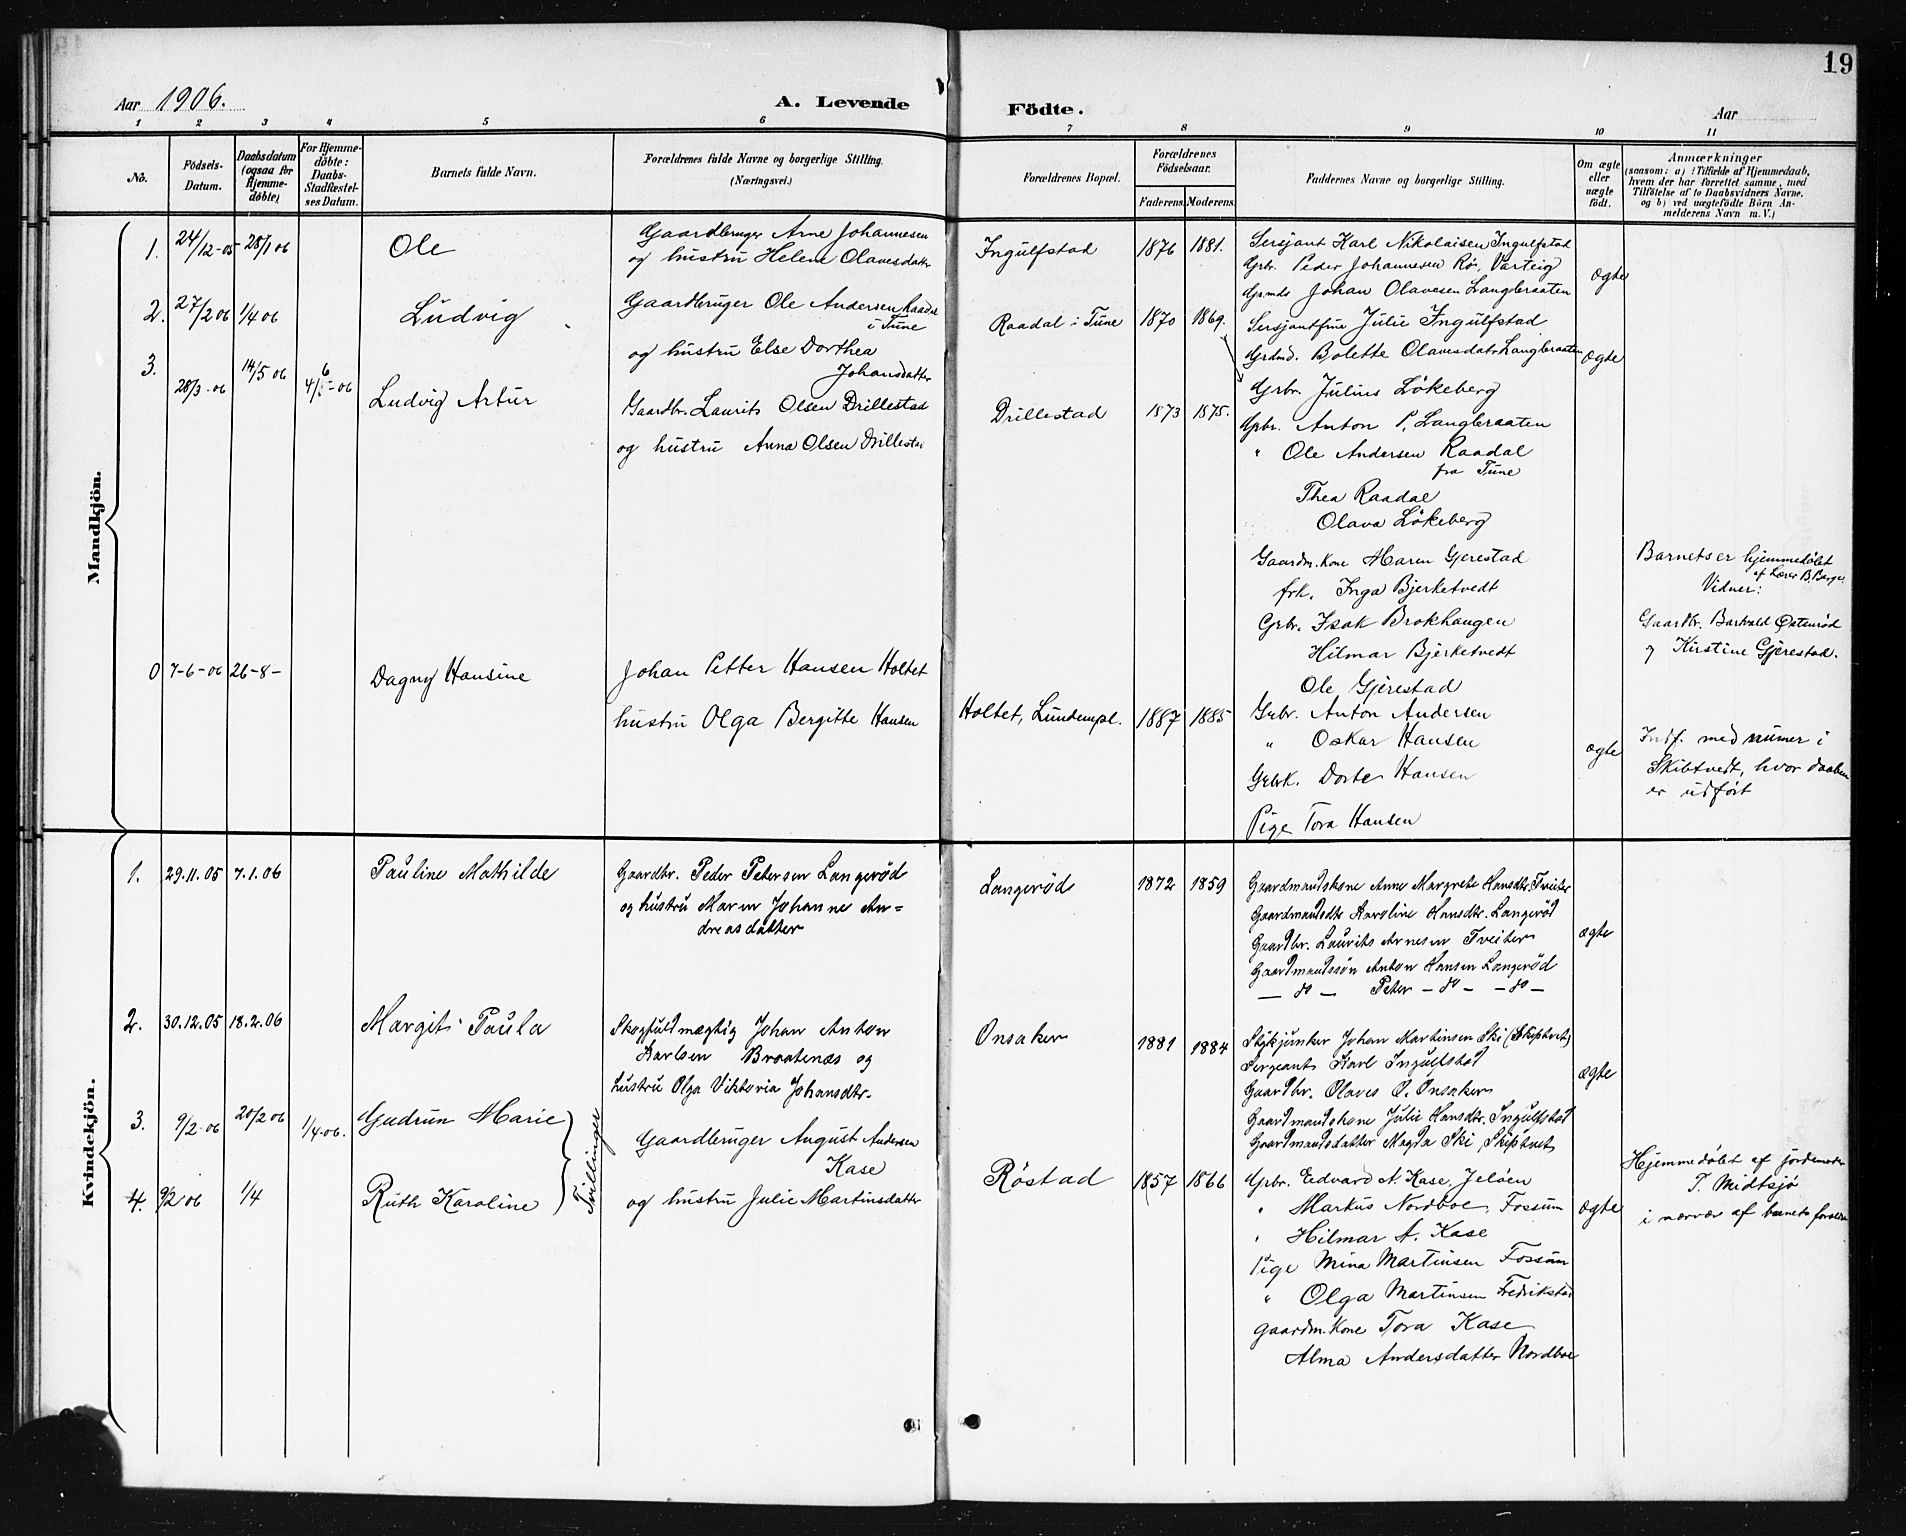 19
Aar 1906.
A. Levende Födte.
Aar
1 2 3 4 5 6 7 8 9 10 11
No.
Födsels-
Datum.
Daabsdatum
(ogsaa for
Hjemme-
döbte)
For Hjemme-
döbte:
Daabs-
Stadfæstel-
ses Datum.
Barnets fulde Navn.
Forældrenes fulde Navne og borgerlige Stilling.
(Næringsvei.)
Forældrenes Bopæl.
Forældrenes
Födselsaar.
Faderens. Moderens.
Faddernes Navne og borgerlige Stilling.
Om ægte
eller
uægte
födt.
Anmærkninger
(saasom: a) i Tilfælde af Hjemmedaab,
hvem der har forrettet samme, med
Tilföielse af to Daabsvidners Navne.
og b) ved uægtefödte Börn An-
melderens Navn m. V.)
Mandkjön.
1. 24/12-05 28/1 06
Ole
Gaardbruger Arne Johannesen
og hustru Helene Olavesdatter
Ingulfstad
1876 1881.
Sersjant Karl Nikolaisen Ingulfstad
Grbr. Peder Johannesen Rö, Varteig
Gmds Johan Olavesen Langbraaten
ægte
2. 27/2 06 1/4 06
Ludvig
Gaardbruger Ole Andersen Raadal
i Tune
og hustru Else Dorthea
Johansdatter
Raadal i Tune
1870 1869.
Sersjantfrue Julie Ingulfstad
Grdmd. Bolette Olavesdatr Langbraaten
Grbr. Julius Lökeberg
ægte
3.
28/3-06 14/5 06 4/6-06
Ludvig Artur
Gaardbr. Laurits Olsen Drillestad
og hustru Anna Olsen Drillestad
Drillestad
1873 1875.
Grbr. Anton P. Langbraaten
" Ole Andersen Raadal
fra Tune
Thea Raadal
Olava Lökeberg
Gaardm.kone Maren Gjerestad
frk. Inga Bjerketvedt
Grbr. Isak Brokhaugen
Hilmar Bjerketvedt
Ole Gjerestad
Barnets er hjemmedøbt
af Lærer B. Berge.
Vidner:
Gaardbr. Bartvald Østenrød
og Kirstine Gjerestad.
0 7-6-06 26-8-
Dagny Hansine
Johan Petter Hansen Holtet
hustru Olga Bergitte Hansen
Holtet, Lundempl.
1887 1885
Grbr. Anton Andersen
" Oskar Hansen
Grbrk. Dorte Hansen
Pige Tora Hansen
ægte
Indf. med numer i
Skibtvedt, hvor daaben
er udført
Kvindekjön.
1. 29.11.05 7.1.06
Pauline Mathilde
Gaardbr. Peder Petersen Langerød
og hustru Maren Johanne An=
dreasdatter
Langerød
1872 1859
Gaardmandskone Anne Margrete Hansdtr. Tveiter
Gaardmandsdtr Karoline Hansdtr. Langerød
Gaardbr. Laurits Arnesen Tveiter
Gaardmandssøn Anton Hansen Langerød
— do — Peter — do — — do —
ægte
2. 30.12.05 18.2.06
Margit Paula
Skogfuldmægtig Johan Anton
Karlsen Braatenæs og
hustru Olga Viktoria Johansdtr.
Onsaker
1881 1884
Stykjunker Johan Martinsen Ski (Skiptvet)
Sergeant Karl Ingulfstad
Gaardbr. Olaves O. Onsaker
Gaardmandskone Julie Hansdtr. Ingulfstad
Gaardmandsdatter Magda Ski, Skiptvet
ægte
3. 9/2-06 20/2 06 1/4-06.
Gudrun Marie
4. 9/2 06 1/4
Ruth Karoline
Tvillinger
Gaardbruger August Andersen
Kase
og hustru Julie Martinsdatter
Röstad
1857 1866
Grbr. Edvard A. Kase, Jelöen
" Markus Nordboe, Fossum
" Hilmar A. Kase
Pige Mina Martinsen Fossum
" Olga Martinsen Fredrikstad
Gaardm.kone Tora Kase
Alma Andersdatter Nordboe
ægte
Hjemmedøbt af jordemoder
T. Midtsjø
i nærvær af barnets forældre